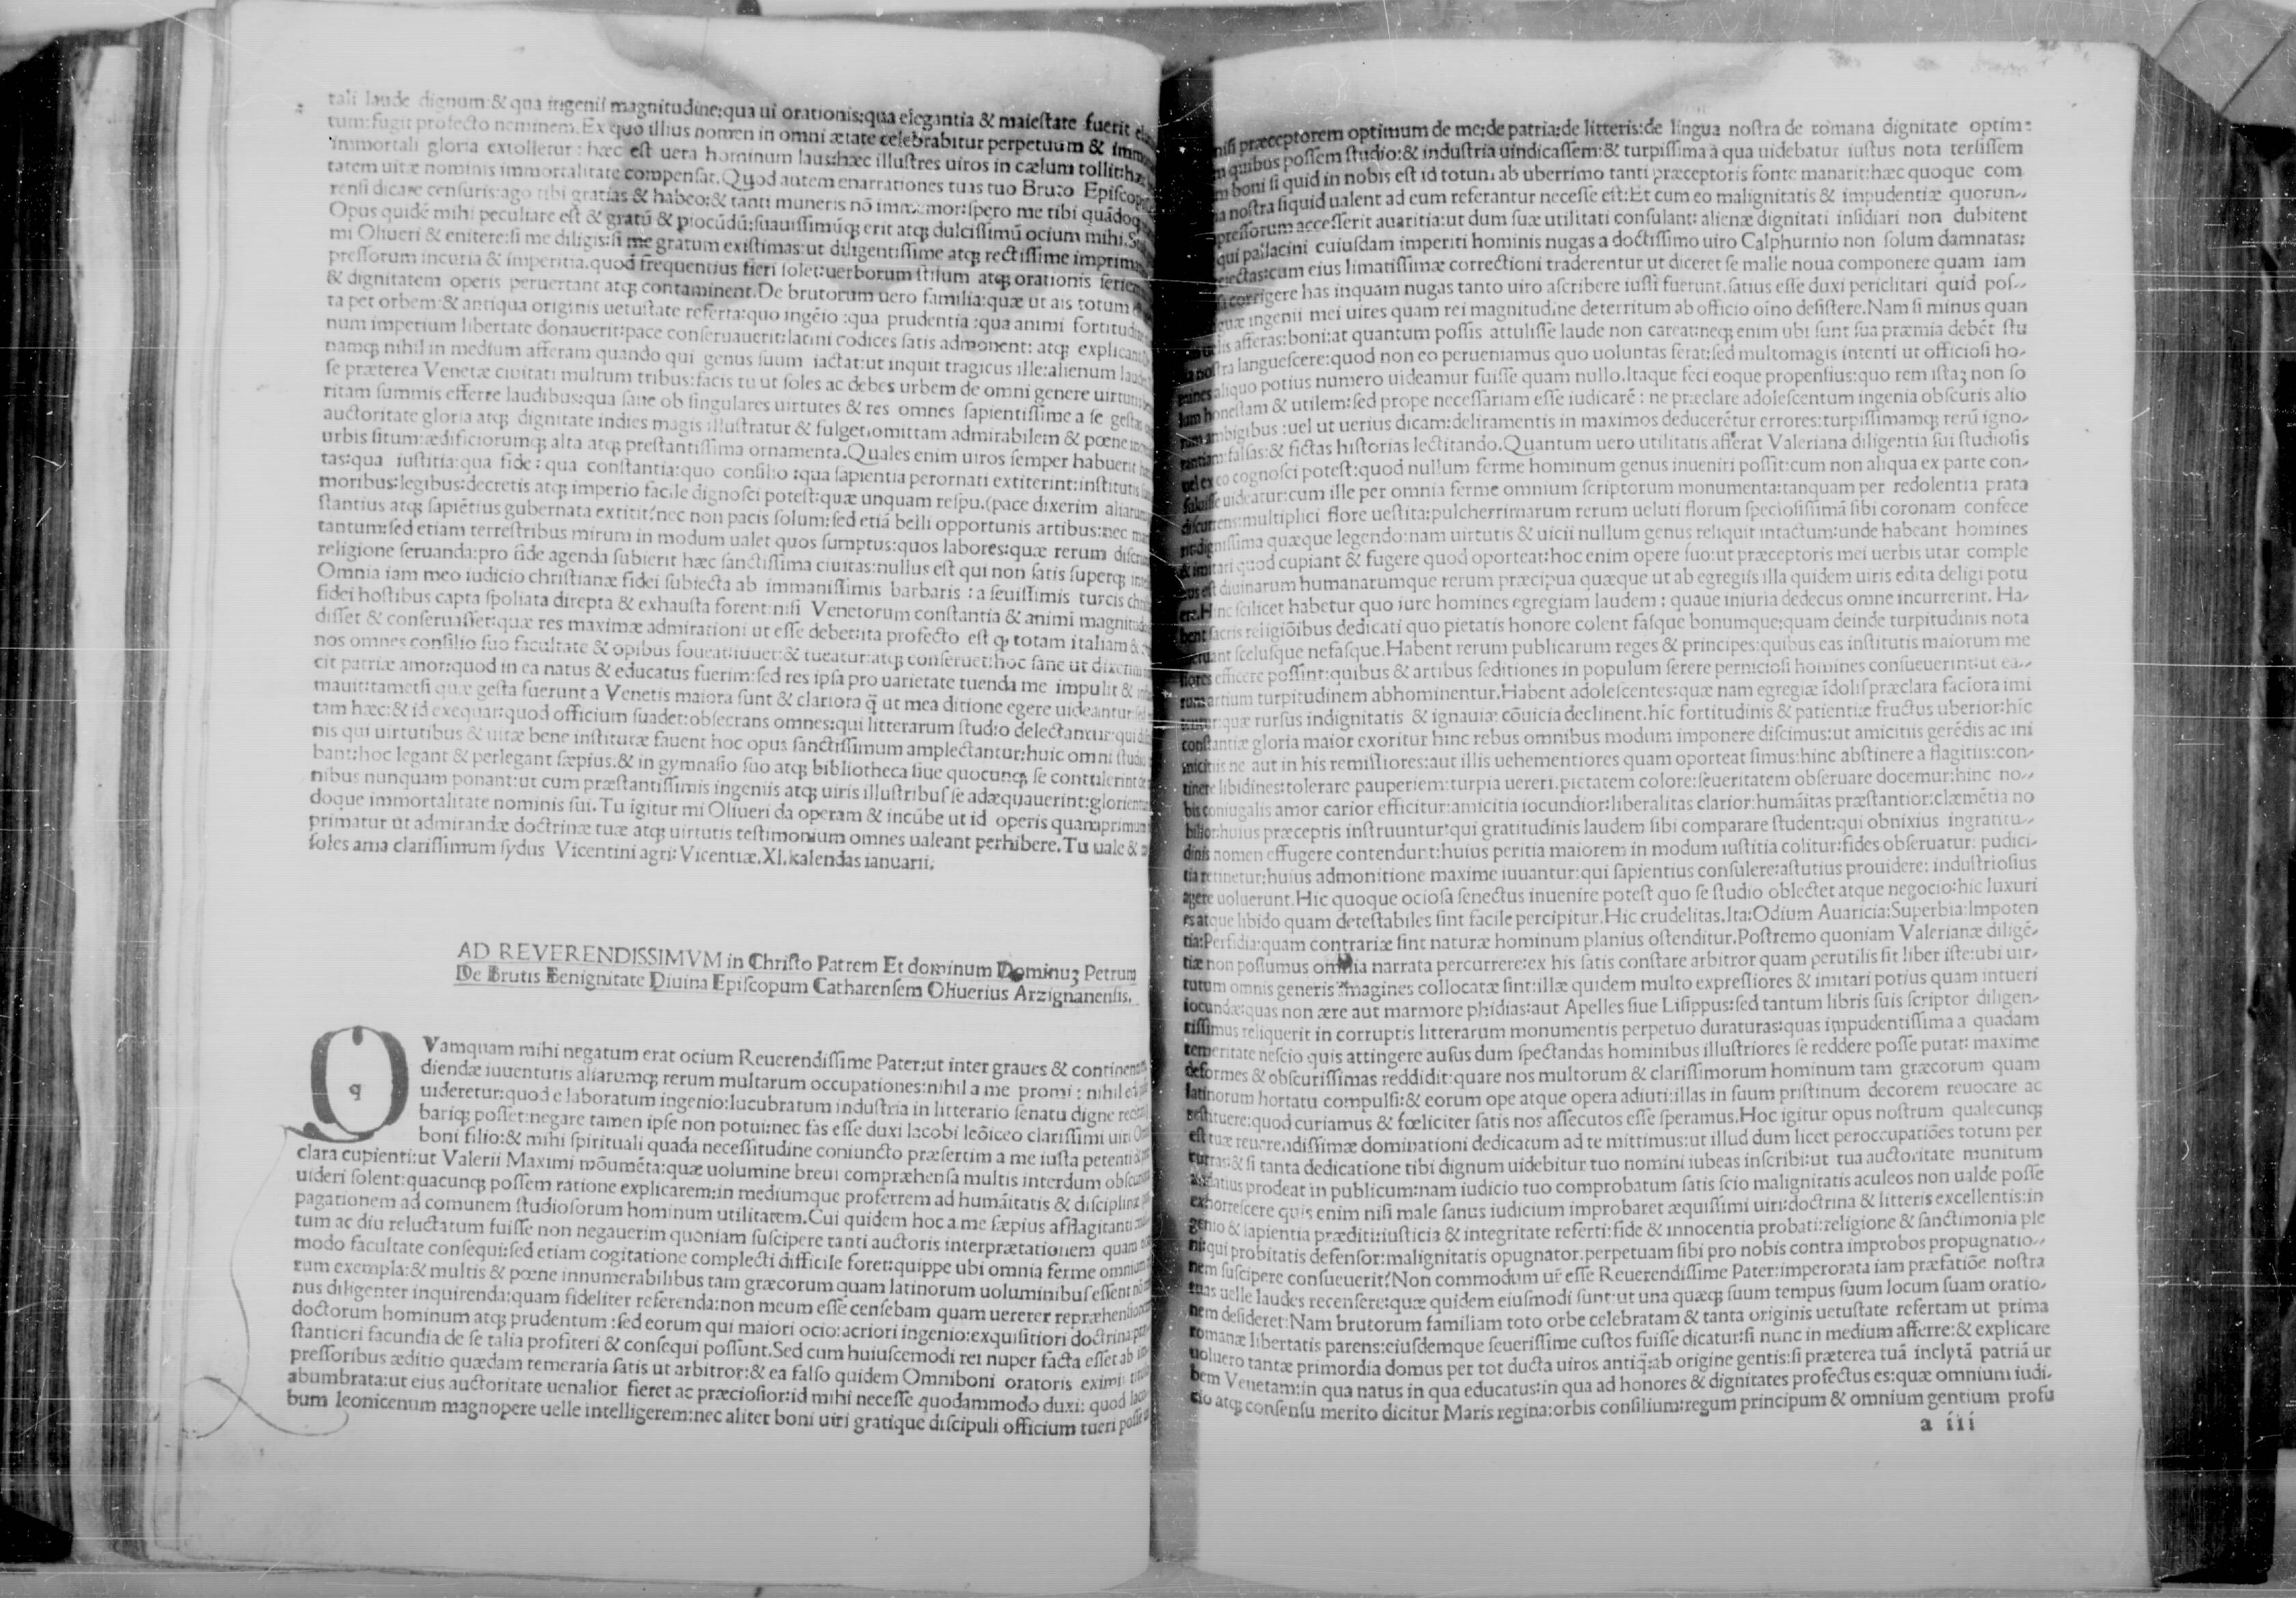 tali laude dignum:& qua ingenii magnitudine:qua ui orationis:qua elegantia & maiestate fuerit
tum:fugit profecto neminem.Ex quo illius nomen in omni ætate celebrabitur perpetuum &
immortali gloria extolletur: hæc est uera hominum laus:hæc illustres uiros in cælum tollit:hæc
tatem uitæ nominis immortalitate compensat.Quod autem enarrationes tuas tuo Bruto
rensi dicare censuris:ago tibi gratias & habeo:& tanti muneris nō immemor:spero me tibi
Opus quidē mihi peculiare est & gratū & iocūdū:suauissimūq; erit atq; dulcissimū ocium mihi.
mi Oliueri & enitere:si me diligis:si me gratum existimas:ut diligentissime atq; rectissime
pressorum incuria & imperitia.quod frequentius fieri solet:uerborum stilum atq; orationis
& dignitatem operis peruertant atq; contaminent.De brutorum uero familia:quæ ut ais totum
ta per orbem:& antiqua originis uetustate referta:quo ingēio :qua prudentia :qua animi
num imperium libertate donauerit:pace conseruauerit:latini codices satis admonent: atq;
namq; nihil in medium afferam quando qui genus suum iactat:ut inquit tragicus ille:alienum
se præterea Venetæ ciuitati multum tribus:facis tu ut soles ac debes urbem de omni genere
ritam summis efferre laudibus:qua sane ob singulares uirtutes & res omnes sapientissime a se
auctoritate gloria atq; dignitate indies magis illustratur & fulget:omittam admirabilem & pœne
urbis situm:ædificiorumq; alta atq; prestantissima ornamenta.Quales enim uiros semper habuerit
tas:qua iustitia:qua fide: qua constantia:quo consilio :qua sapientia perornati extiterint:institutis
moribus:legibus:decretis atq; imperio facile dignosci potest:quæ unquam respu.(pace dixerim
stantius atq; sapiētius gubernata extitit?nec non pacis solum:sed etiā belli opportunis artibus:nec
tantum:sed etiam terrestribus mirum in modum ualet quos sumptus:quos labores:quæ rerum
religione seruanda:pro fide agenda subierit hæc sanctissima ciuitas:nullus est qui non satis superq;
Omnia iam meo iudicio christianæ fidei subiecta ab immanissimis barbaris : a seuissimis turcis
fidei hostibus capta spoliata direpta & exhausta forent:nisi Venetorum constantia & animi
disset & conseruasset:quæ res maximæ admirationi ut esse debet:ita profecto est q̨ totam italiam &
nos omnes consilio suo facultate & opibus foueat:iuuet:& tueatur:atq; conseruet:hoc sane ut
cit patriæ amor:quod in ea natus & educatus fuerim:sed res ipsa pro uarietate tuenda me impulit &
mauit:tametsi quæ gesta fuerunt a Venetis maiora sunt & clariora q̄ ut mea ditione egere uideantur
tam hæc:& id exequar:quod officium suadet:obsecrans omnes:qui litterarum studio delectantur:
nis qui uirtutibus & uitæ bene institutæ fauent hoc opus sanctissimum amplectantur:huic omni
bant:hoc legant & perlegant sæpius.& in gymnasio suo atq; bibliotheca siue quocunq; se contulerint
nibus nunquam ponant:ut cum præstantissimis ingeniis atq; uiris illustribus se adæquauerint:
doque immortalitate nominis sui.Tu igitur mi Oliueri da operam & incūbe ut id operis quamprimum
primatur ut admirandæ doctrinæ tuæ atq; uirtutis testimonium omnes ualeant perhibere.Tu uale &
soles ama clarissimum sydus Vicentini agri: Vicentiæ.XI.kalendas ianuarii.
AD REVERENDISSIMVM in Christo Patrem Et dominum Dominuȝ Petrum
De Brutis Benignitate Diuina Episcopum Catharensem Oliuerius Arzignanensis.
q
QVamquam mihi negatum erat ocium Reuerendissime Pater:ut inter graues &
diendæ iuuentutis aliarumq; rerum multarum occupationes:nihil a me promi : nihil
uideretur:quod elaboratum ingenio:lucubratum industria in litterario senatu digne
bariq; posset:negare tamen ipse non potui:nec fas esse duxi Iacobi leōiceo clarissimi uiri
boni filio:& mihi spirituali quada necessitudine coniuncto præsertim a me iusta petenti
clara cupienti:ut Valerii Maximi mōumēta:quæ uolumine breui compræhensa multis interdum
uideri solent:quacunq; possem ratione explicarem:in mediumque proferrem ad humāitatis &
pagationem ad comunem studiosorum hominum utilitatem.Cui quidem hoc a me sæpius afflagitanti
tum ac diu reluctatum fuisse non negauerim quoniam suscipere tanti auctoris interprætationem quam
modo facultate consequi:sed etiam cogitatione complecti difficile foret:quippe ubi omnia ferme
rum exempla:& multis & pœne innumerabilibus tam græcorum quam latinorum uoluminibus essent
nus diligenter inquirenda:quam fideliter referenda:non meum esse censebam quam uererer
doctorum hominum atq; prudentum :sed eorum qui maiori ocio:acriori ingenio:exquisitiori doctrina:
stantiori facundia de se talia profiteri & consequi possunt.Sed cum huiuscemodi rei nuper facta esset ab
pressoribus æditio quædam temeraria satis ut arbitror:& ea falso quidem Omniboni oratoris eximii
abumbrata:ut eius auctoritate uenalior fieret ac præciosior:id mihi necesse quodammodo duxi: quod
bum leonicenum magnopere uelle intelligerem:nec aliter boni uiri gratique discipuli officium tueri
nisi præceptorem optimum de me:de patria:de litteris:de lingua nostra de romana dignitate optim:
quibus possem studio:& industria uindicassem:& turpissima a qua uidebatur iustus nota tersissem
boni si quid in nobis est id totum ab uberrimo tanti præceptoris fonte manarit:hæc quoque com
nostra siquid ualent ad eum referantur necesse est:Et cum eo malignitatis & impudentiæ quorun
pressorum accesserit auaritia:ut dum suæ utilitati consulant: alienæ dignitati insidiari non dubitent
qui pallacini cuiusdam imperiti hominis nugas a doctissimo uiro Calphurnio non solum damnatas:
eiectas:cum eius limatissimæ correctioni traderentur ut diceret se malle noua componere quam iam
corrigere has inquam nugas tanto uiro ascribere iusti fuerunt.satius esse duxi periclitari quid pos
quæ ingenii mei uires quam rei magnitudine deterritum ab officio oīno desistere.Nam si minus quan
afferas:boni:at quantum possis attulisse laude non careat:neq; enim ubi sunt sua præmia debēt stu
nostra languescere:quod non eo perueniamus quo uoluntas ferat:sed multomagis intenti ut officiosi ho
aliquo potius numero uideamur fuisse quam nullo.Itaque feci eoque propensius:quo rem istaȝ non so
lum honestam & utilem:sed prope necessariam esse iudicarē : ne præclare adolescentum ingenia obscuris alio
rum ambigibus :uel ut uerius dicam:deliramentis in maximos deducerētur errores:turpissimamq; rerū igno
rantiam:falsas:& fictas historias lectitando.Quantum uero utilitatis afferat Valeriana diligentia sui studiosis
uel ex eo cognosci potest:quod nullum ferme hominum genus inueniri possit:cum non aliqua ex parte con
uideatur:cum ille per omnia ferme omnium scriptorum monumenta:tanquam per redolentia prata
discurrens:multiplici flore uestita:pulcherrimarum rerum ueluti florum speciosissimā sibi coronam confece
rit:dignissima quæque legendo:nam uirtutis & uicii nullum genus reliquit intactum:unde habeant homines
& imitari quod cupiant & fugere quod oporteat:hoc enim opere suo:ut præceptoris mei uerbis utar comple
xus est diuinarum humanarumque rerum præcipua quæque ut ab egregiis illa quidem uiris edita deligi potu
ere.Hinc scilicet habetur quo iure homines egregiam laudem : quaue iniuria dedecus omne incurrerint. Ha
bent sacris religiōibus dedicati quo pietatis honore colent fasque bonumque:quam deinde turpitudinis nota
scelusque nefasque.Habent rerum publicarum reges & principes:quibus eas institutis maiorum me
liores efficere possint:quibus & artibus seditiones in populum serere perniciosi homines consueuerint:ut ea
rum artium turpitudinem abhominentur.Habent adolescentes:quæ nam egregiæ īdolis præclara faciora imi
tentur:quæ rursus indignitatis & ignauiæ cōuicia declinent.hic fortitudinis & patientiæ fructus uberior:hic
constantiæ gloria maior exoritur hinc rebus omnibus modum imponere discimus:ut amicitiis gerēdis ac ini
micitiis ne aut in his remissiores:aut illis uehementiores quam oporteat simus:hinc abstinere a flagitiis:con
tinere libidines:tolerare pauperiem:turpia uereri.pietatem colore:seueritatem obseruare docemur:hinc no
bis coniugalis amor carior efficitur:amicitia iocundior:liberalitas clarior:humāitas præstantior:clæmētia no
bilior:huius præceptis instruuntur:qui gratitudinis laudem sibi comparare student:qui obnixius ingratitu
dinis nomen effugere contendunt:huius peritia maiorem in modum iustitia colitur:fides obseruatur: pudici
tia retinetur:huius admonitione maxime iuuantur:qui sapientius consulere:astutius prouidere: industriosius
agere uoluerunt.Hic quoque ociosa senectus inuenire potest quo se studio oblectet atque negocio:hic luxuri
es atque libido quam detestabiles sint facile percipitur.Hic crudelitas.Ita:Odium Auaricia:Superbia:Impoten
tia:Perfidia:quam contrariæ sint naturæ hominum planius ostenditur.Postremo quoniam Valerianæ diligē
tiæ non possumus omnia narrata percurrere:ex his satis constare arbitror quam perutilis sit liber iste:ubi uir
tutum omnis generis imagines collocatæ sint:illæ quidem multo expressiores & imitari potius quam intueri
iocundæ:quas non ære aut marmore phidias:aut Apelles siue Lisippus:sed tantum libris suis scriptor diligen
tissimus reliquerit in corruptis litterarum monumentis perpetuo duraturas:quas impudentissima a quadam
temeritate nescio quis attingere ausus dum spectandas hominibus illustriores se reddere posse putat: maxime
deformes & obscurissimas reddidit:quare nos multorum & clarissimorum hominum tam græcorum quam
latinorum hortatu compulsi:& eorum ope atque opera adiuti:illas in suum pristinum decorem reuocare ac
restituere:quod curiamus & fœliciter satis nos assecutos esse speramus.Hoc igitur opus nostrum qualecunq;
est tuæ reuerendissimæ dominationi dedicatum ad te mittimus:ut illud dum licet peroccupatiōes totum per
curras:& si tanta dedicatione tibi dignum uidebitur tuo nomini iubeas inscribi:ut tua auctoritate munitum
prodeat in publicum:nam iudicio tuo comprobatum satis scio malignitatis aculeos non ualde posse
exhorrescere quis enim nisi male sanus iudicium improbaret æquissimi uiri:doctrina & litteris excellentis:in
genio & sapientia præditi:iusticia & integritate referti:fide & innocentia probati:religione & sanctimonia ple
ni:qui probitatis defensor:malignitatis opugnator.perpetuam sibi pro nobis contra improbos propugnatio
nem suscipere consueuerit?Non commodum ur̄ esse Reuerendissime Pater:imperorata iam præfatiōe nostra
tuas uelle laudes recensere:quæ quidem eiusmodi sunt:ut una quæq; suum tempus suum locum suam oratio
nem desideret:Nam brutorum familiam toto orbe celebratam & tanta originis uetustate refertam ut prima
romanæ libertatis parens:eiusdemque seuerissime custos fuisse dicatur:si nunc in medium afferre:& explicare
uoluero tantæ primordia domus per tot ducta uiros antiq̄:ab origine gentis:si præterea tuā inclytā patriā ur
bem Venetam:in qua natus in qua educatus:in qua ad honores & dignitates profectus es:quæ omnium iudi
cio atq; consensu merito dicitur Maris regina:orbis consilium:regum principum & omnium gentium profu
a iii